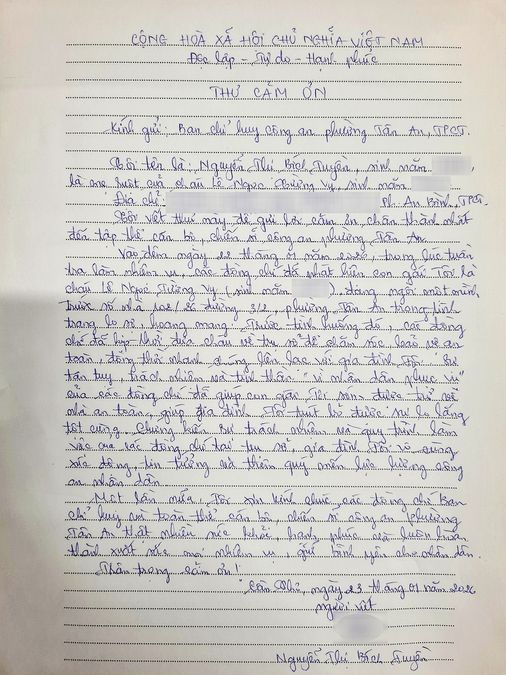 CỘNG HOÀ XÃ HỘI CHỦ NGHĨA VIỆT NAM
Độc lập - Tự do - Hạnh phúc
THƯ CẢM ƠN
Kính gửi: Ban chỉ huy công an phường Tân An, TPCT.
Tôi tên là: Nguyễn Thị Bích Tuyền, sinh năm
là mẹ ruột của cháu Lê Ngọc Tường Vy, sinh năm
Địa chỉ: Ph. An Bình, TPCT.
Tôi viết thư này để gửi lời cảm ơn chân thành nhất
đến tập thể cán bộ, chiến sĩ công an phường Tân An.
Vào đêm ngày 22 tháng 01 năm 2026, trong lúc tuần
tra làm nhiệm vụ, các đồng chí đã phát hiện con gái Tôi là
cháu Lê Ngọc Tường Vy (sinh năm ) đang ngồi một mình
trước số nhà 102/ đường 3/2, phường Tân An trong tình
trạng lo sợ, hoang mang. Trước tình huống đó, các đồng
chí đã kịp thời đưa cháu về trụ sở để chăm sóc, bảo vệ an
toàn, đồng thời nhanh chóng liên lạc với gia đình Tôi. Sự
tận tụy, trách nhiệm và tinh thần "vì nhân dân phục vụ"
của các đồng chí đã giúp con gái Tôi sớm được trở về
nhà an toàn, giúp gia đình Tôi trút bỏ được sự lo lắng
tột cùng. Chứng kiến sự trách nhiệm và quy trình làm
việc của các đồng chí tại trụ sở, gia đình Tôi vô cùng
xúc động, tin tưởng và thêm quý mến lực lượng công
an nhân dân.
Một lần nữa, Tôi xin kính chúc các đồng chí Ban
chỉ huy và toàn thể cán bộ, chiến sĩ công an phường
Tân An thật nhiều sức khỏe, hạnh phúc và luôn hoàn
thành xuất sắc mọi nhiệm vụ, giữ bình yên cho nhân dân.
Trân trọng cảm ơn!
Cần Thơ, ngày 23 tháng 01 năm 2026
người viết
Nguyễn Thị Bích Tuyền